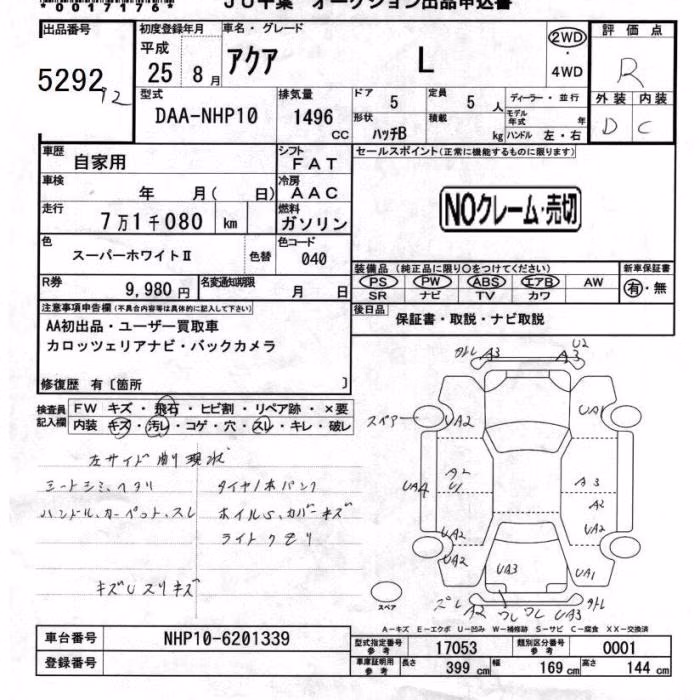 *0017176*
JU千葉 オークション出品申込書
出品番号
5292
72
初度登録年月 車名・グレード
平成
25 8月
アクア
L
2WD
4WD
評価点
R
外装 内装
D C
型式
DAA-NHP10
排気量
1496
CC
ドア
5
定員
5 人
形状
ハッチB
積載
kg
ディーラー・並行
モデル年式 年
ハンドル 左・右
車歴
自家用
シフト
FAT
車検
年 月( 日)
冷房
AAC
走行
7万1千080 km
燃料
ガソリン
色
スーパーホワイトⅡ
色替
色コード
040
R券
9,980円
名変通知期限
月 日
セールスポイント(正常に機能するものに限ります)
NOクレーム・売切
装備品 (純正品に限り○をつけてください)
新車保証書
PS PW ABS エアB AW
SR ナビ TV カワ
有・無
後日品
保証書・取説・ナビ取説
注意事項申告欄(不具合内容等は具体的に記入して下さい)
AA初出品・ユーザー買取車
カロッツェリアナビ・バックカメラ
修復歴 有〔箇所 〕
検査員記入欄
FW キズ・飛石・ヒビ割・リペア跡・×要
内装 キズ・汚レ・コゲ・穴・スレ・キレ・破レ
左サイド削リ現状
シートシミ、ヘタリ
タイヤ1本パンク
ハンドル、カーペット、スレ
ホイルS、カバーキズ
ライトクモリ
キズUスリキズ
ソトレ A3 A3 U2
スペアー
UA2 UA1
A2
U1
UA4
A3
A2
UA2 UA2
UA2 UA3 UA1
スペア
ズレ A2 ワレ ワレ UA3 ソトレ
A-キズ E-エクボ U-凹み W-補修跡 S-サビ C-腐食 XX-交換済
車台番号
NHP10-6201339
登録番号
型式指定番号 参考
17053
類別区分番号 参考
0001
車庫証明用 参考
長さ 399 cm
幅 169 cm
高さ 144 cm